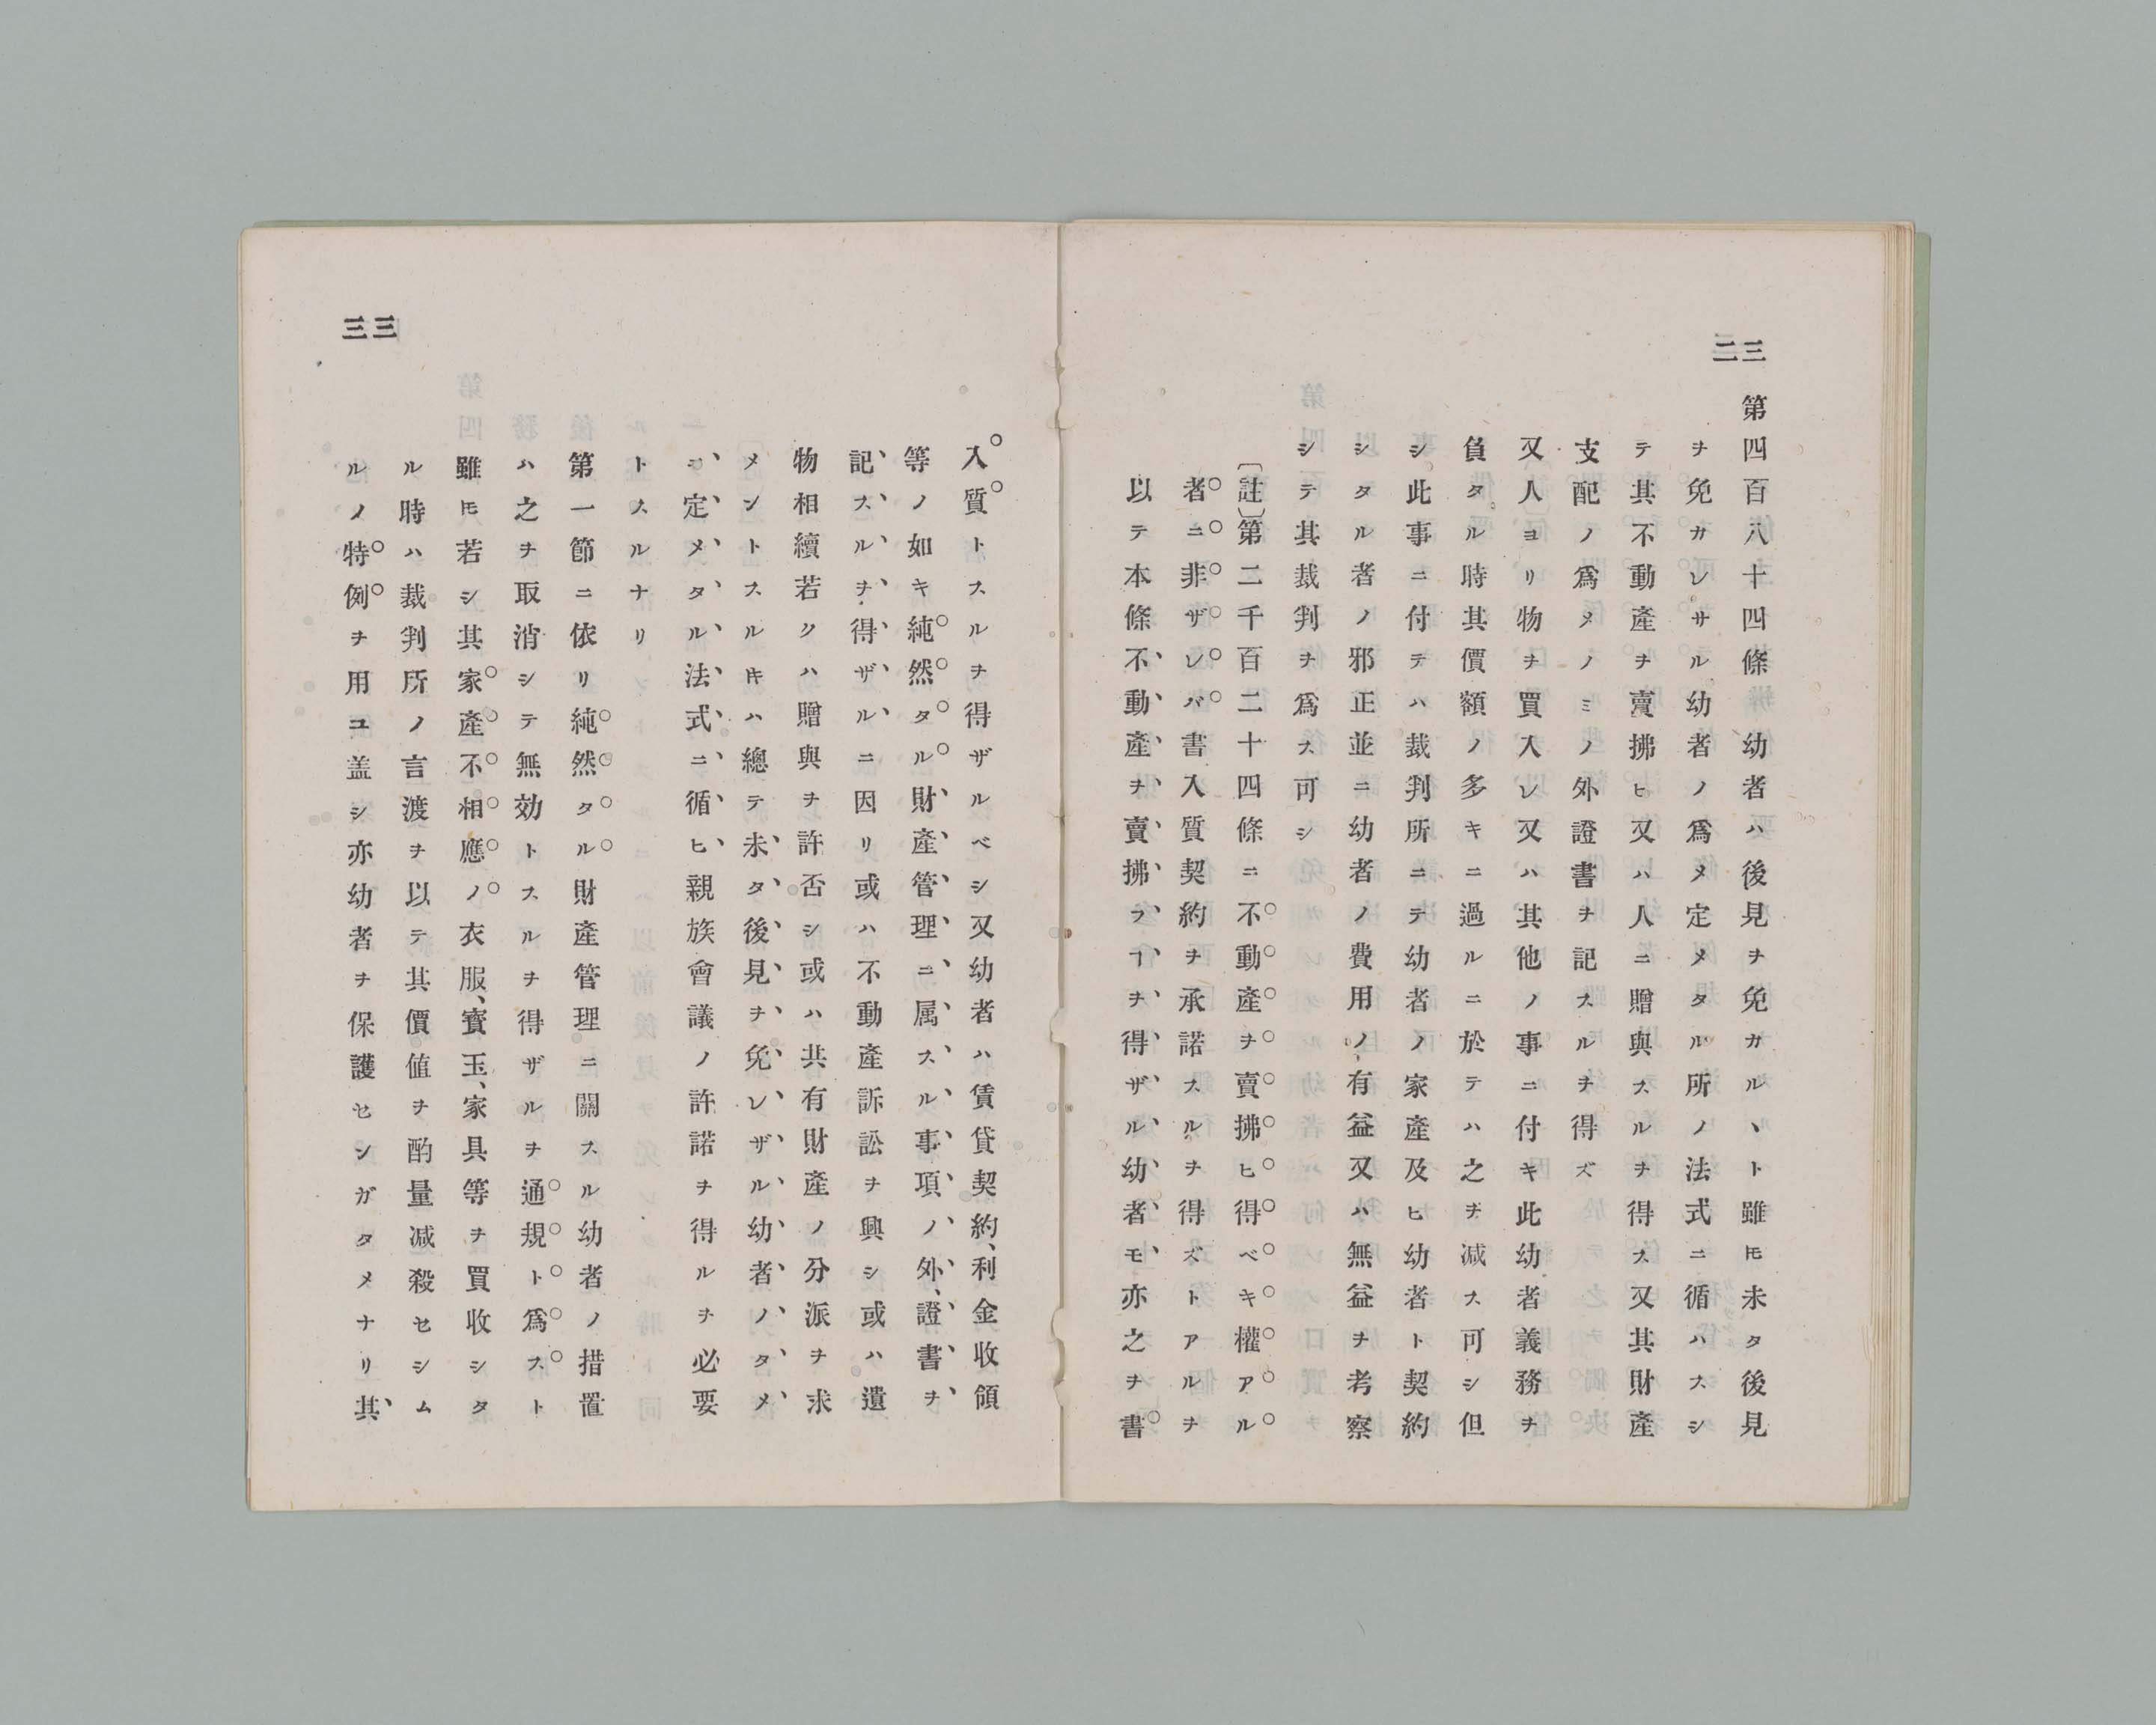 三二
第四百八十四條　幼者ハ後見ヲ免ガルヽト雖𪜈未タ後見
ヲ免ガレサル幼者ノ爲メ定メタル所ノ法式ニ循ハスシ
テ其不動產ヲ賣拂ヒ又ハ人ニ贈與スルヲ得ス又其財產
支配ノ爲メノミノ外證書ヲ記スルヲ得ズ
又人ヨリ物ヲ買入レ又ハ其他ノ事ニ付キ此幼者義務ヲ
負タル時其價額ノ多キニ過ルニ於テハ之ヲ減ス可シ但
シ此事ニ付テハ裁判所ニテ幼者ノ家產及ヒ幼者ト契約
シタル者ノ邪正並ニ幼者ノ費用ノ有益又ハ無益ヲ考察
シテ其裁判ヲ爲ス可シ
〔註〕第二千百二十四條ニ不動產ヲ賣拂ヒ得ベキ權アル
者ニ非ザレバ書入質契約ヲ承諾スルヲ得ズトアルヲ
以テ本條不動產ヲ賣拂フヿヲ得ザル幼者モ亦之ヲ書
三三
入質トスルヲ得ザルベシ又幼者ハ賃貸契約、利金收領
等ノ如キ純然タル財產管理ニ属スル事項ノ外、證書ヲ
記スルヲ得ザルニ因リ或ハ不動產訴訟ヲ興シ或ハ遺
物相續若クハ贈與ヲ許否シ或ハ共有財產ノ分派ヲ求
メントスルキハ總テ未タ後見ヲ免レザル幼者ノタメ
ニ定メタル法式ニ循ヒ親族會議ノ許諾ヲ得ルヲ必要
トスルナリ
第一節ニ依リ純然タル財產管理ニ關スル幼者ノ措置
ハ之ヲ取消シテ無効トスルヲ得ザルヲ通規ト爲スト
雖𪜈若シ其家產不相應ノ衣服、寳玉、家具等ヲ買收シタ
ル時ハ裁判所ノ言渡ヲ以テ其價値ヲ酌量減殺セシム
ルノ特例ヲ用ユ盖シ亦幼者ヲ保護センガタメナリ其